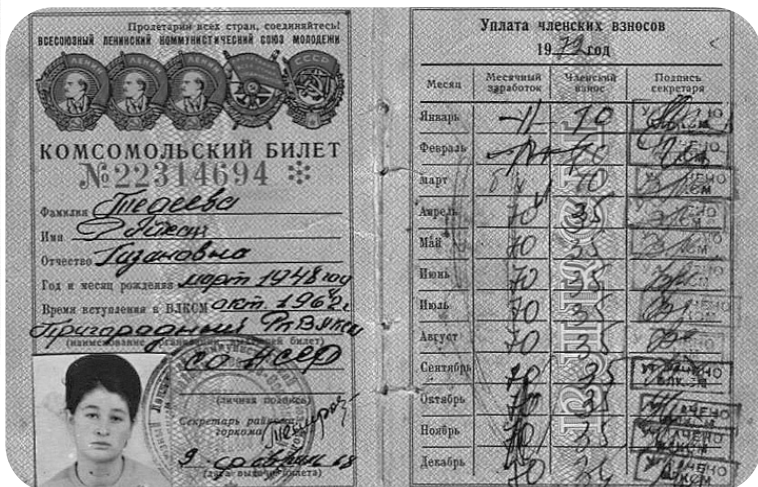 Пролетарии всех стран, соединяйтесь!
ВСЕСОЮЗНЫЙ ЛЕНИНСКИЙ КОММУНИСТИЧЕСКИЙ СОЮЗ МОЛОДЕЖИ
ЛЕНИН ЛЕНИН ЛЕНИН СССР
КОМСОМОЛЬСКИЙ БИЛЕТ
№ 22314694
Фамилия Тедеева
Имя
Отчество Гизановна
Год и месяц рождения март 1948 год
Время вступления в ВЛКСМ окт. 1962г
Пригородный РК ВЛКСМ
(наименование организации, выдавшей билет)
СО АССР
(личная подпись)
Секретарь райкома,
горкома
9 февраля 68
(дата выдачи билета)
Уплата членских взносов
1972 год
Месяц Месячный заработок Членский взнос Подпись секретаря
Январь 70
Февраль 70 УПЛАЧЕНО ВЛКСМ
Март 70
Апрель 70 35
Май 70 35
Июнь 70 35
Июль 70 35
Август 70 35
Сентябрь 70 35 УПЛАЧЕНО ВЛКСМ
Октябрь 70 35 УПЛАЧЕНО
Ноябрь 70 35 УПЛАЧЕНО ВЛКСМ
Декабрь 70 УПЛАЧЕНО ВЛКСМ